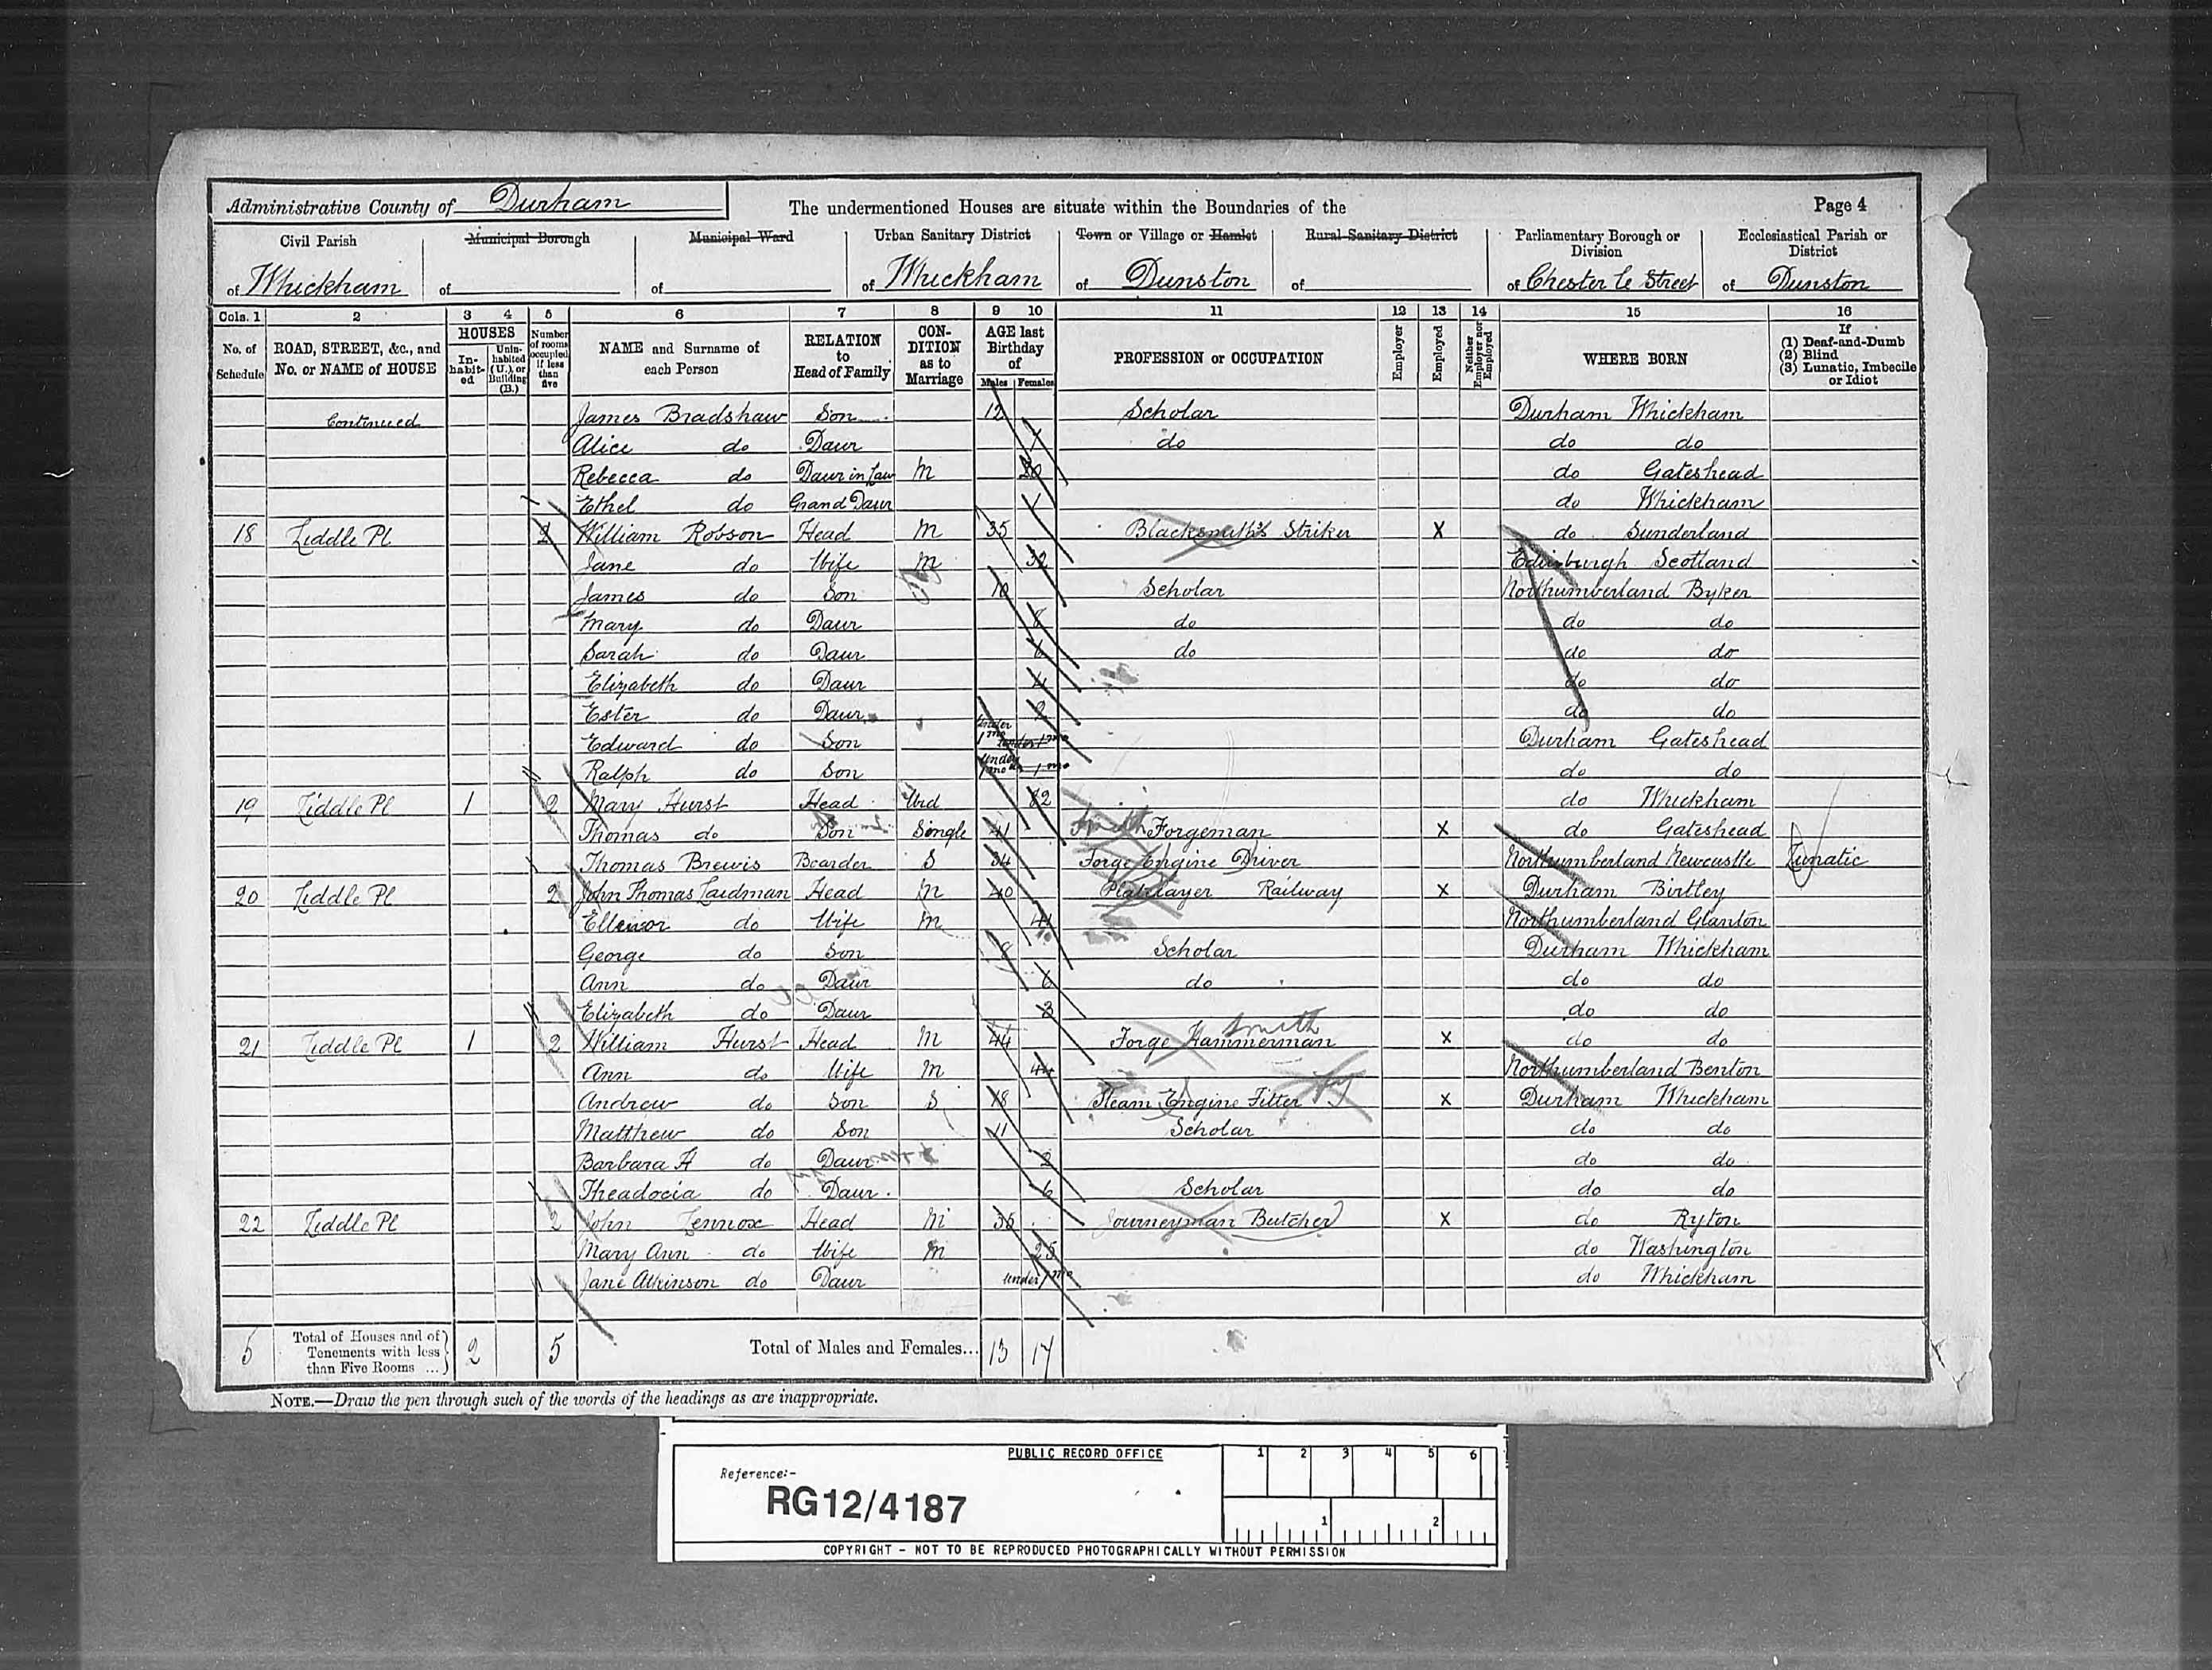 Administrative County of Durham The undermentioned Houses are situate within the Boundaries of the Page 4
Civil Parish Municipal Borough Municipal Ward Urban Sanitary District Town or Village or Hamlet Rural Sanitary District Parliamentary Borough or Division Ecclesiastical Parish or District
of Whickham of of of Whickham of Dunston of of Chester le Street of Dunston
Cols. 1 2 3 4 5 6 7 8 9 10 11 12 13 14 15 16
No. of Schedule ROAD, STREET, &c., and No. or NAME of HOUSE HOUSES Inhabited Uninhabited (U.), or Building (B.) Number of rooms occupied if less than five NAME and Surname of each Person RELATION to Head of Family CONDITION as to Marriage AGE last Birthday of Males Females PROFESSION or OCCUPATION Employer Employed Neither Employer nor Employed WHERE BORN If (1) Deaf-and-Dumb (2) Blind (3) Lunatic, Imbecile or Idiot
Continued James Bradshaw Son 12 Scholar Durham Whickham
Alice do Daur 7 do do do
Rebecca do Daur in Law M 20 do Gateshead
Ethel do Grand Daur 1 do Whickham
18 Liddle Pl 2 William Robson Head M 35 Blacksmith's Striker X do Sunderland
Jane do Wife M 32 Edinburgh Scotland
James do Son 10 Scholar Northumberland Byker
Mary do Daur 8 do do do
Sarah do Daur 6 do do do
Elizabeth do Daur 4 do do
Ester do Daur 2 do do
Edward do Son under 1 mo under 1 mo Durham Gateshead
Ralph do Son under 1 mo 1 mo do do
19 Liddle Pl 1 2 Mary Hurst Head Wid 82 do Whickham
Thomas do Son Single 41 Smith Forgeman X do Gateshead
Thomas Brewis Boarder S 34 Forge Engine Driver Northumberland Newcastle Lunatic
20 Liddle Pl 2 John Thomas Laidman Head M 40 Platelayer Railway X Durham Birtley
Ellenor do Wife M 41 Northumberland Glanton
George do Son 8 Scholar Durham Whickham
Ann do Daur 6 do do do
Elizabeth do Daur 3 do do
21 Liddle Pl 1 2 William Hurst Head M 44 Forge Hammerman smith X do do
Ann do Wife M 44 Northumberland Benton
Andrew do Son S 18 Steam Engine Fitter X Durham Whickham
Matthew do Son 11 Scholar do do
Barbara H do Daur 2 do do
Theadocia do Daur 6 Scholar do do
22 Liddle Pl 2 John Lennox Head M 35 Journeyman Butcher X do Ryton
Mary Ann do Wife M 25 do Washington
Jane Atkinson do Daur under 1 mo do Whickham
5 Total of Houses and of Tenements with less than Five Rooms ... 2 5 Total of Males and Females... 13 17
NOTE.—Draw the pen through such of the words of the headings as are inappropriate.
PUBLIC RECORD OFFICE 1 2 3 4 5 6
Reference:-
RG12/4187
1 2
COPYRIGHT - NOT TO BE REPRODUCED PHOTOGRAPHICALLY WITHOUT PERMISSION